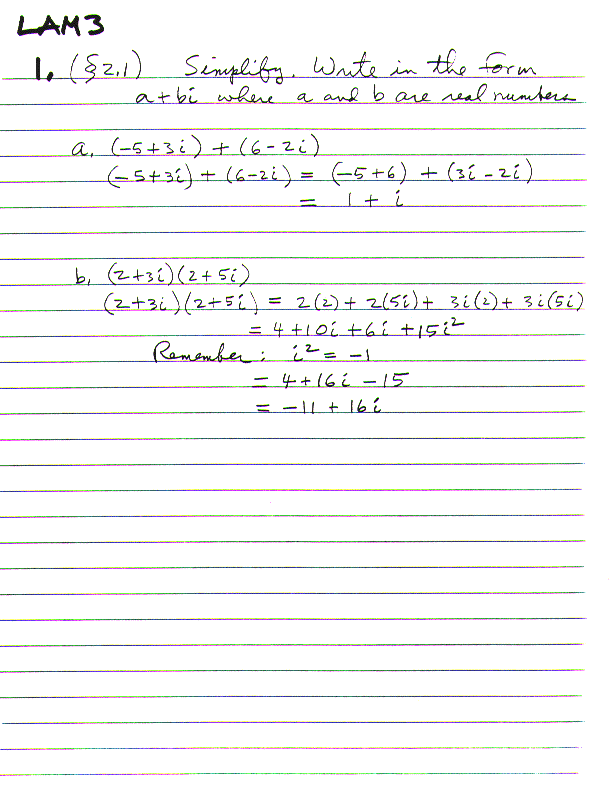 LAM3
1. (§2.1) Simplify. Write in the form
a+bi where a and b are real numbers
a. (-5+3i) + (6-2i)
(-5+3i) + (6-2i) = (-5+6) + (3i-2i)
= 1 + i
b. (2+3i)(2+5i)
(2+3i)(2+5i) = 2(2) + 2(5i) + 3i(2) + 3i(5i)
= 4+10i+6i+15i²
Remember: i² = -1
= 4+16i-15
= -11 + 16i